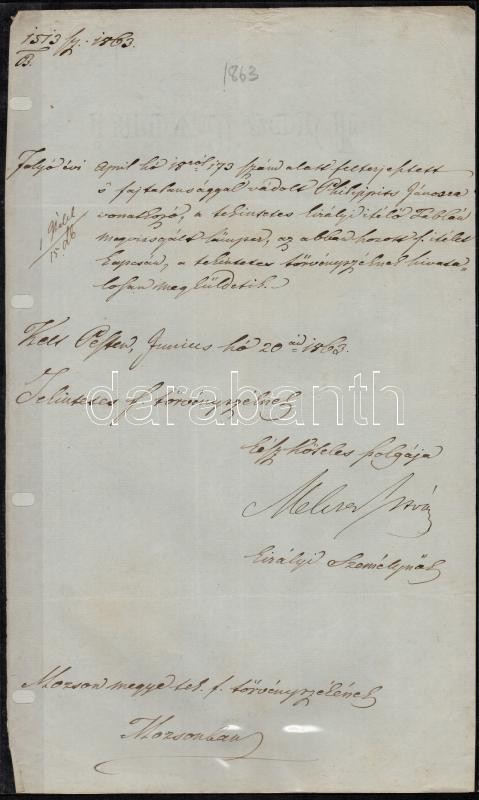 1513/B. sz. 1863.
1863
Folyó évi April hó 18ról 173 szám alatt felterjesztett
s fajtalansággal vádolt Philippits Jánosra
vonatkozó, a tekintetes királyi itélő Táblán
megvizsgált bűnper, az abban hozott f. itélet
kapcsán, a tekintetes törvényszéknek hivata-
losan megküldetik.
1 Itélet
15. db
Kelt Pesten, Junius hó 20án 1863.
darabanth
Tekintetes f. törvényszéknek
köteles szolgája
Melczer István
királyi Személynök
Mozson megye tek. f. törvényszékének
Mozsonban